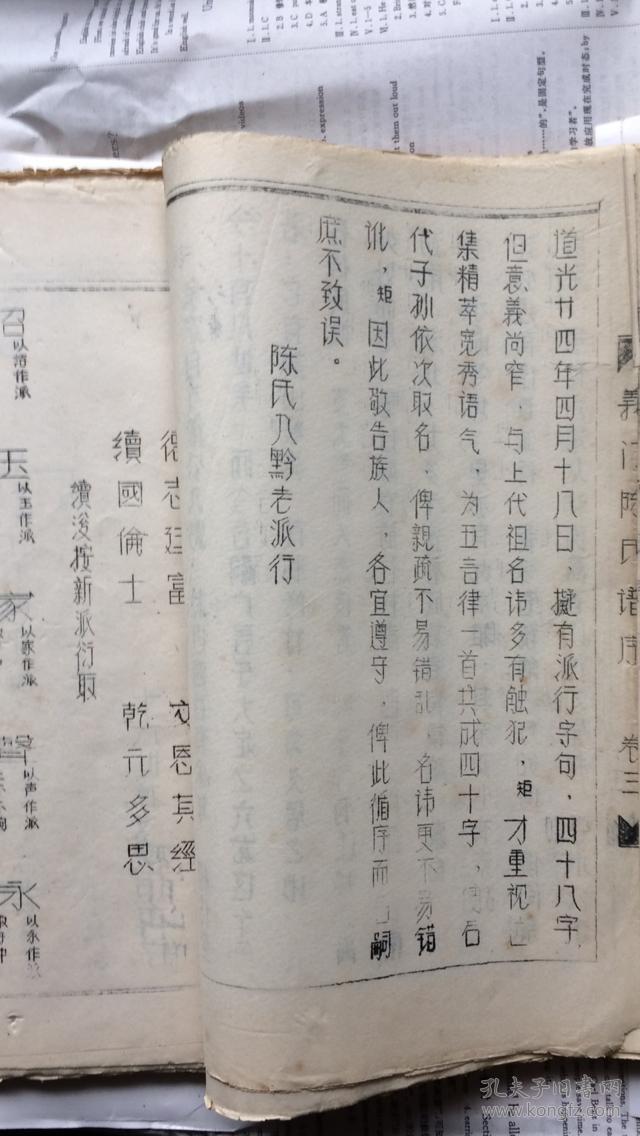 道光廿四年四月十八日，擬有派行字句，四十八字
但意義尚窄，与上代祖名讳多有触犯，矩才重视
集精萃宽秀语气，为五言律一首共成四十字，后
代子孙依次取名，俾親疏不易错乱，名讳更不易错
讹，矩因此敬告族人，各宜遵守，俾此循序而嗣
庶不致误。
陈氏入黔老派行
德志廷富 文恩其經
續國倫士 乾元多思
續後按新派衍取
召以沼作派
玉以玉作派
家以家作派
聲以声作派
永以永作派
義门陈氏谱序 卷三
孔夫子旧书网
www.kongfz.com